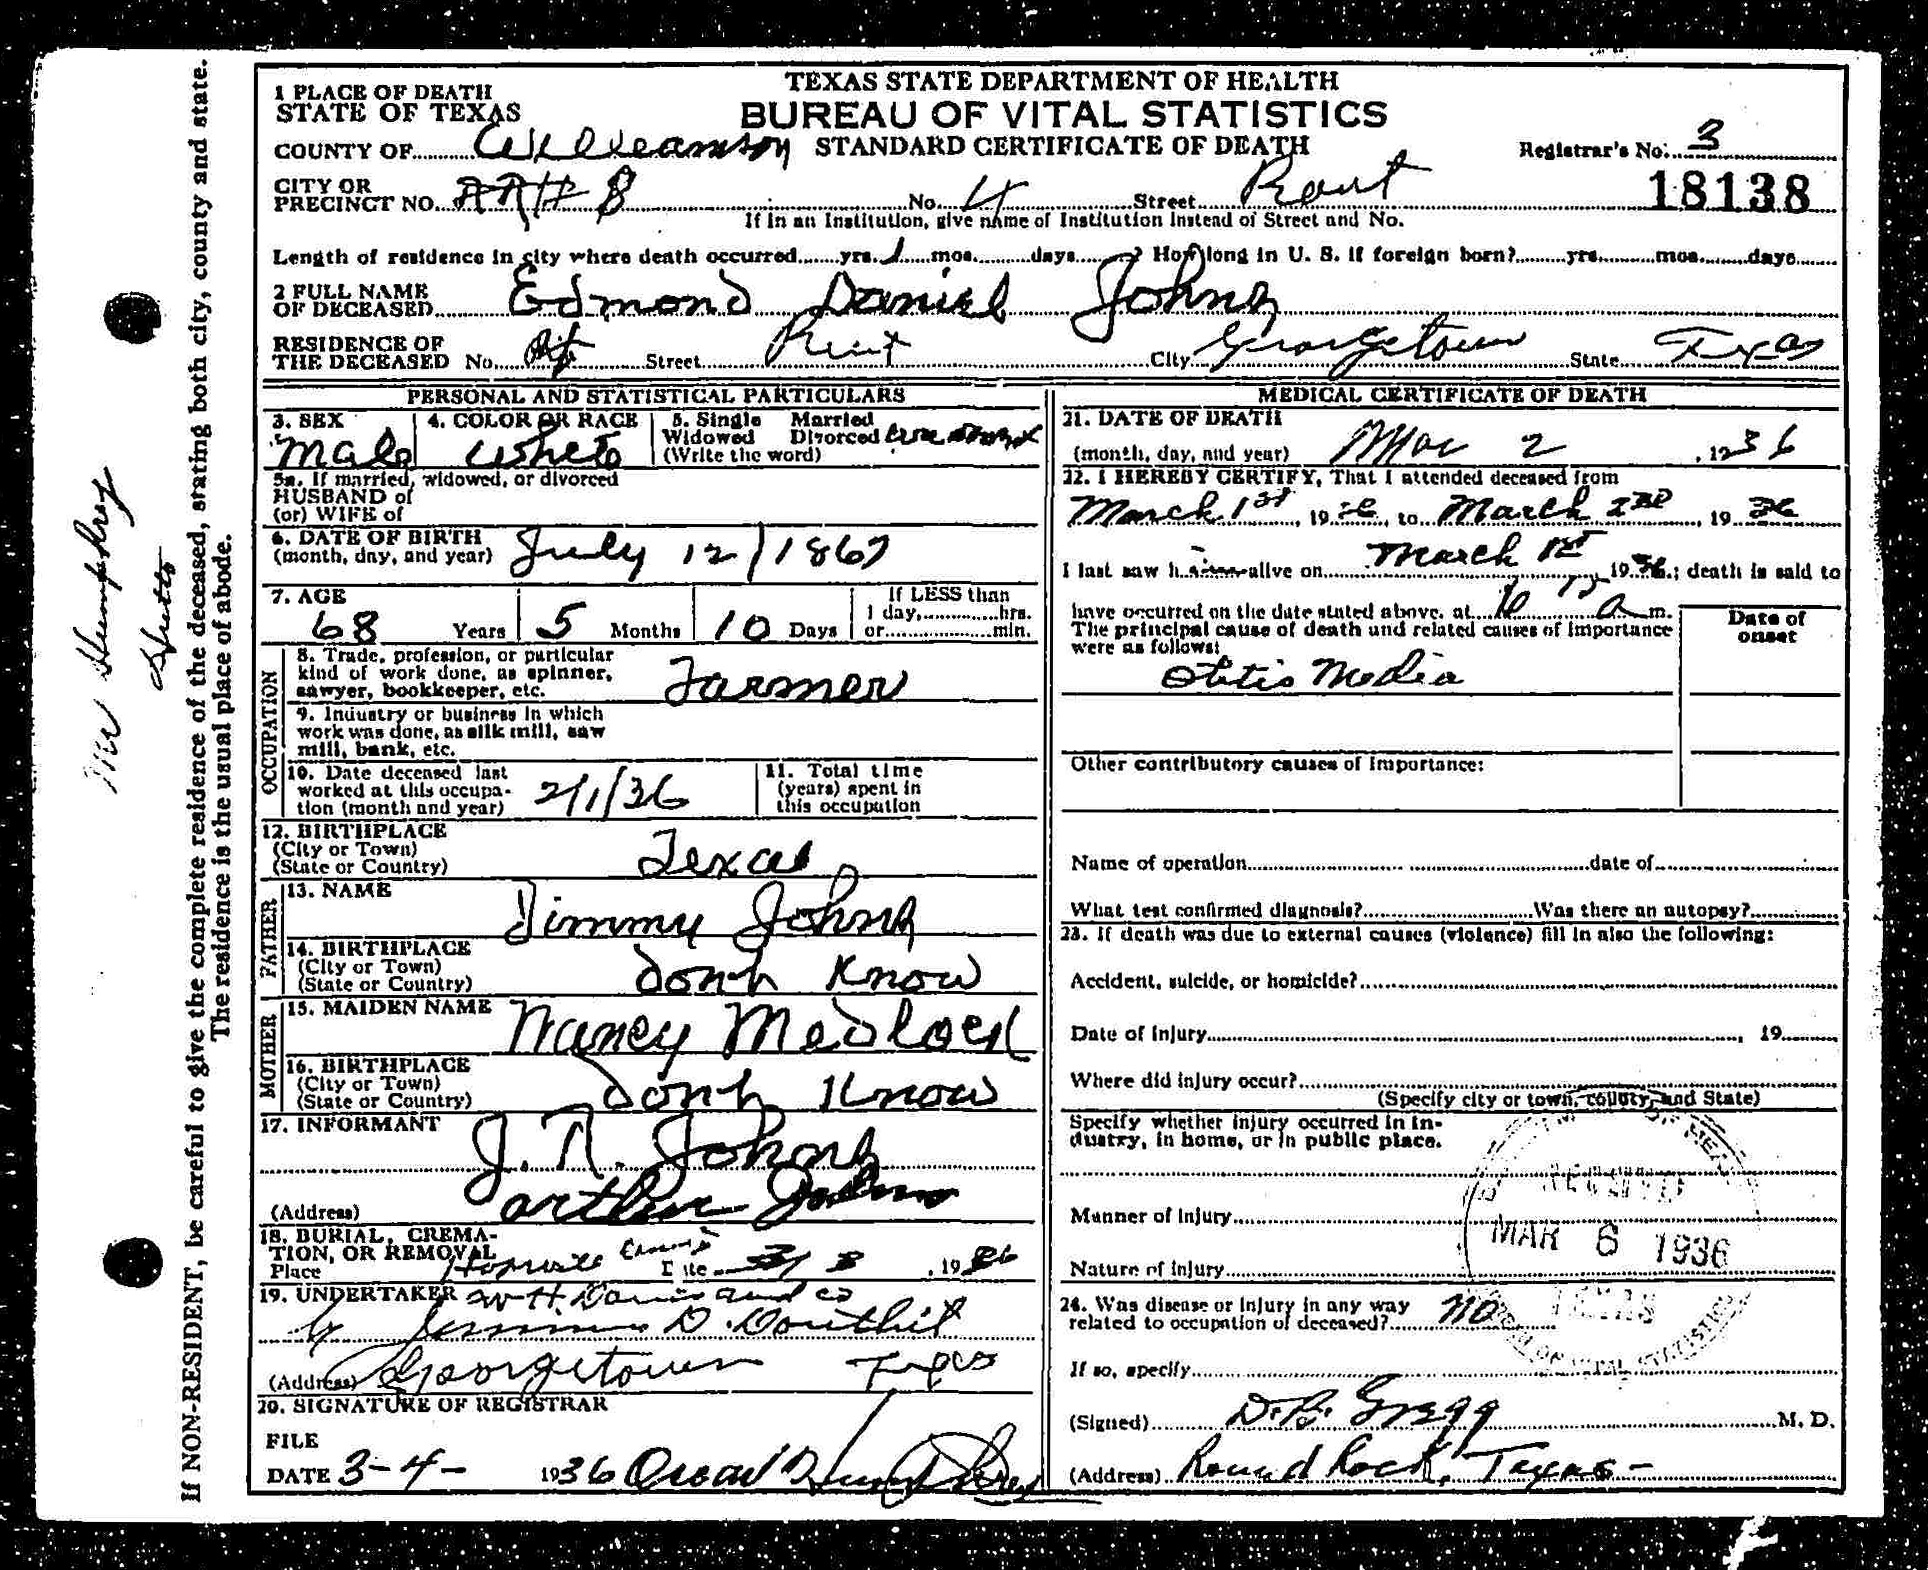 TEXAS STATE DEPARTMENT OF HEALTH
BUREAU OF VITAL STATISTICS
STANDARD CERTIFICATE OF DEATH
1 PLACE OF DEATH
STATE OF TEXAS
COUNTY OF Williamson
Registrar's No. 3
18138
CITY OR
PRECINCT NO. No. 4 Street Rout
If in an Institution, give name of Institution instead of Street and No.
Length of residence in city where death occurred yrs. 1 mos. days ? How long in U. S. if foreign born? yrs. mos. days
2 FULL NAME
OF DECEASED Edmond Daniel Johns
RESIDENCE OF
THE DECEASED No. Street City Georgetown State Texas
PERSONAL AND STATISTICAL PARTICULARS
3. SEX
Male
4. COLOR OR RACE
White
5. Single Married
Widowed Divorced
(Write the word)
5a. If married, widowed, or divorced
HUSBAND of
(or) WIFE of
6. DATE OF BIRTH
(month, day, and year) July 12 / 1867
7. AGE
68 Years 5 Months 10 Days
If LESS than
1 day, hrs.
or min.
OCCUPATION
8. Trade, profession, or particular
kind of work done, as spinner,
sawyer, bookkeeper, etc. Farmer
9. Industry or business in which
work was done, as silk mill, saw
mill, bank, etc.
10. Date deceased last
worked at this occupa-
tion (month and year) 2/1/36
11. Total time
(years) spent in
this occupation
12. BIRTHPLACE
(City or Town)
(State or Country) Texas
FATHER
13. NAME Jimmy Johns
14. BIRTHPLACE
(City or Town)
(State or Country) dont Know
MOTHER
15. MAIDEN NAME Nancy Medlock
16. BIRTHPLACE
(City or Town)
(State or Country) dont Know
17. INFORMANT
J. A. Johns
(Address) Arthur Johns
18. BURIAL, CREMA-
TION, OR REMOVAL
Place Date 3/3, 1936
19. UNDERTAKER W H. Davis and co
by D. Douthit
(Address) Georgetown Texas
20. SIGNATURE OF REGISTRAR
FILE
DATE 3-4- 1936 Oscar Humphrey
MEDICAL CERTIFICATE OF DEATH
21. DATE OF DEATH
(month, day, and year) Mar 2, 1936
22. I HEREBY CERTIFY, That I attended deceased from
March 1st, 1936, to March 2nd, 1936
I last saw him alive on March 1st, 1936; death is said to
have occurred on the date stated above, at a m.
The principal cause of death and related causes of importance
were as follows:
Date of
onset
Otitis Media
Other contributory causes of importance:
Name of operation date of
What test confirmed diagnosis? Was there an autopsy?
23. If death was due to external causes (violence) fill in also the following:
Accident, suicide, or homicide?
Date of injury , 19
Where did injury occur?
(Specify city or town, county, and State)
Specify whether injury occurred in in-
dustry, in home, or in public place.
Manner of injury
Nature of injury
24. Was disease or injury in any way
related to occupation of deceased? No
If so, specify
(Signed) D. B. Gregg M. D.
(Address) Round Rock, Texas-
RECEIVED
MAR 6 1936
TEXAS
BUREAU OF VITAL STATISTICS
If NON-RESIDENT, be careful to give the complete residence of the deceased, stating both city, county and state.
The residence is the usual place of abode.
Mr Humphrey